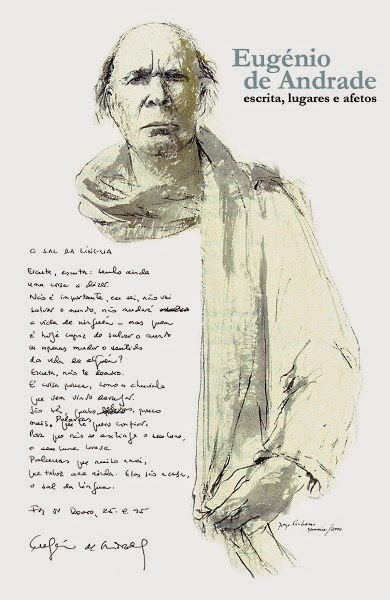 Eugénio
de Andrade
escrita, lugares e afetos
O SAL DA LÍNGUA
Escuta, escuta: tenho ainda
uma coisa a dizer.
Não é importante, eu sei, não vai
salvar o mundo, não mudará
a vida de ninguém – mas quem
é hoje capaz de salvar o mundo
ou apenas mudar o sentido
da vida de alguém?
Escuta, não te demoro.
É coisa pouca, como a chuvinha
que vem vindo devagar.
São três, quatro palavras, pouco
mais. Palavras que te quero confiar.
Para que não se extinga o seu lume,
o seu lume breve.
Palavras que muito amei,
que talvez ame ainda. Elas são a casa,
o sal da língua.
Foz do Douro, 25.8.95
Eugénio de Andrade